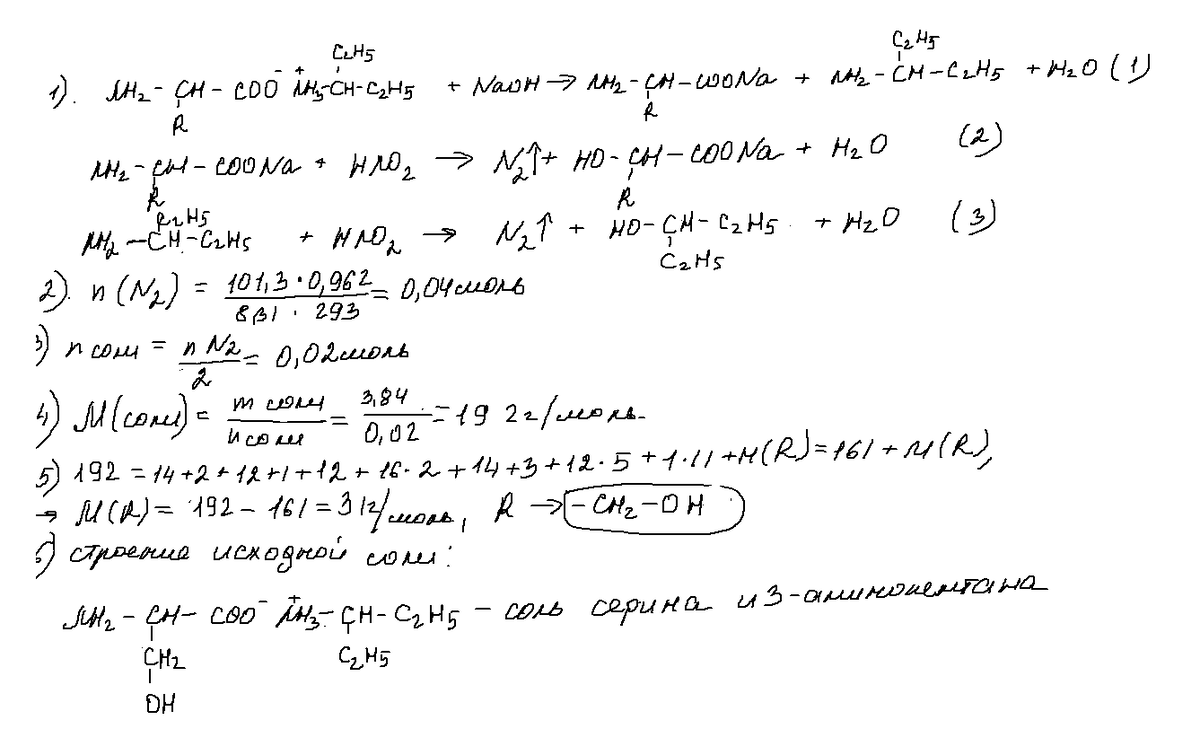 C2H5 C2H5
1). NH2 - CH - COO⁻ ⁺NH3-CH-C2H5 + NaOH → NH2 - CH - COONa + NH2 - CH - C2H5 + H2O (1)
R R
NH2 - CH - COONa + HNO2 → N2↑ + HO - CH - COONa + H2O (2)
R R
C2H5
NH2 - CH - C2H5 + HNO2 → N2↑ + HO - CH - C2H5 + H2O (3)
C2H5
2). n(N2) = 101,3 · 0,962 / 8,31 · 293 = 0,04 моль
3) n соли = n N2 / 2 = 0,02 моль
4) M(соли) = m соли / n соли = 3,84 / 0,02 = 192 г/моль.
5) 192 = 14+2+12+1+12+16·2+14+3+12·5+1·11+M(R) = 161 + M(R),
→ M(R) = 192 - 161 = 31 г/моль, R → -CH2-OH
6) строение исходной соли:
NH2 - CH - COO⁻ ⁺NH3 - CH - C2H5 - соль серина и 3-аминопентана
CH2 C2H5
OH